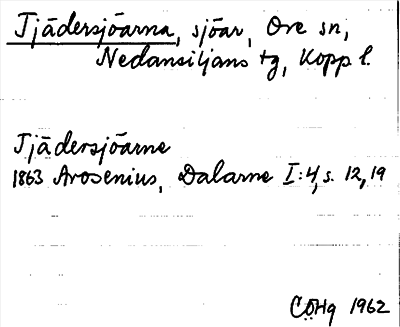 Tjädersjöarna, sjöar, Ore sn,
Nedansiljans tg, Kopp l.
Tjädersjöarne
1863 Arosenius, Dalarne I:4, s. 12, 19
CÖHg 1962